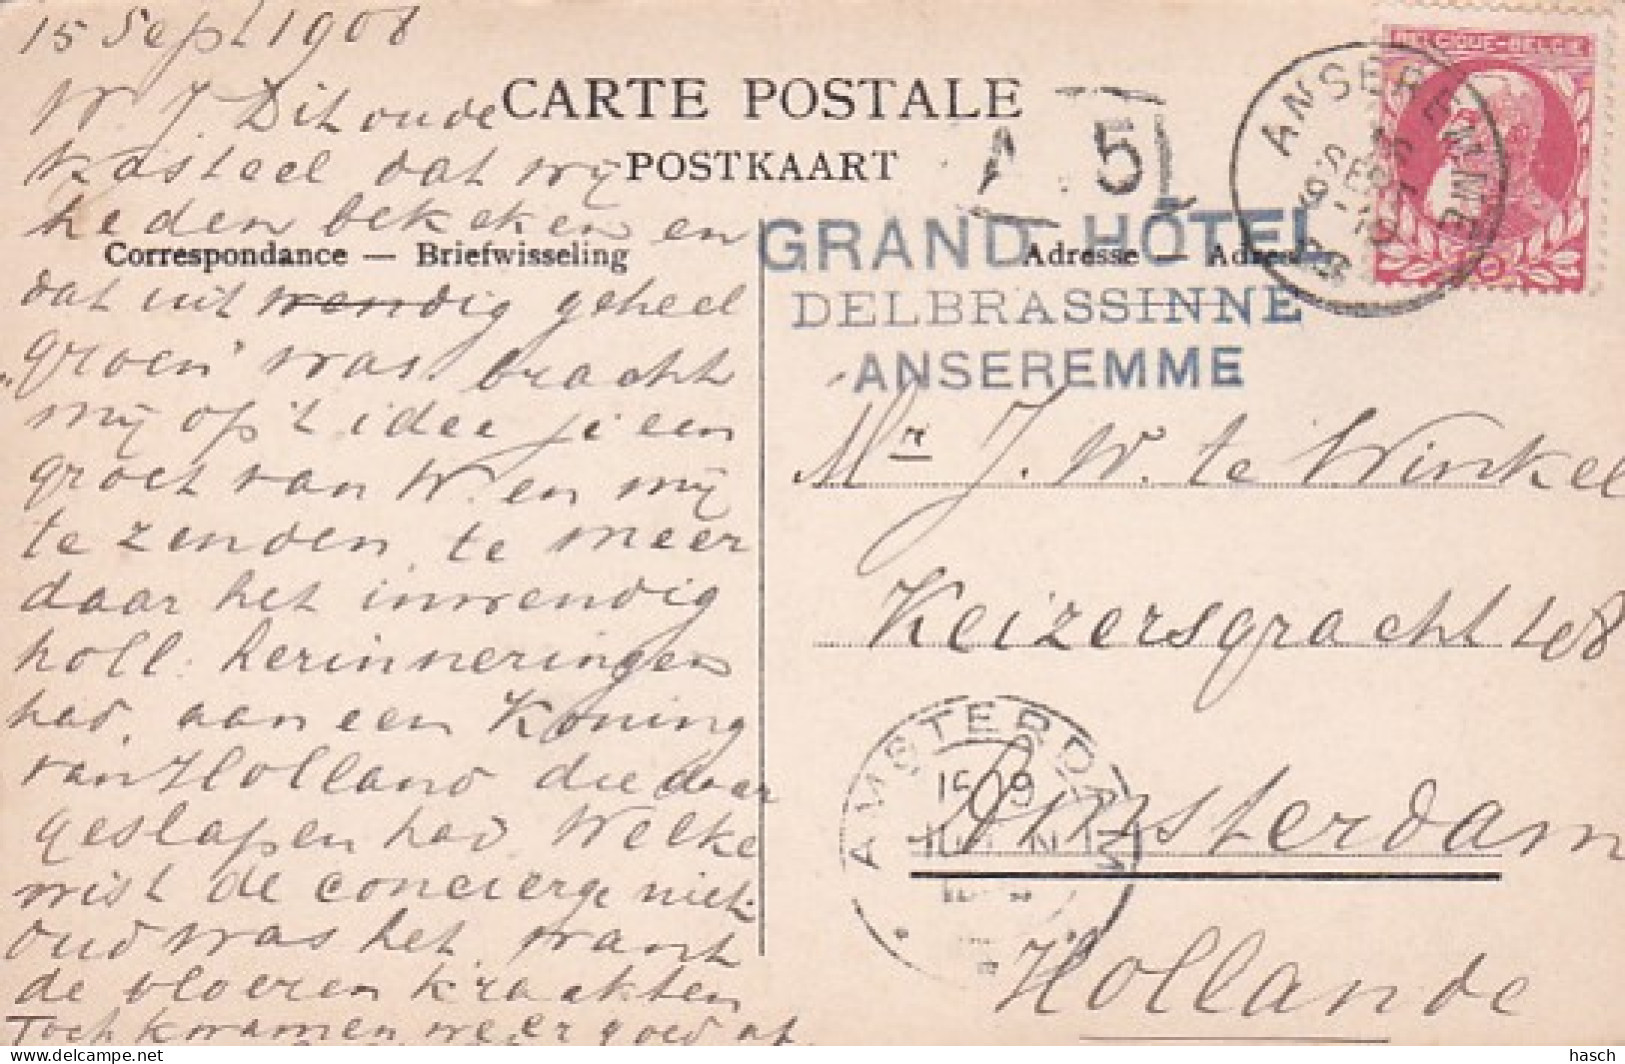 15 Sept 1908
W. J. Dit oude
kasteel dat wij
heden bekeken en
dat uitwendig geheel
"groen" was. bracht
mij op 't idee je een
groet van W. en mij
te zenden, te meer
daar het inwendig
holl. herinneringen
had, aan een Koning
van Holland die daar
geslapen had. Welke
wist de concierge niet.
oud was het, want
de vloeren kraakten
Toch kwamen weer goed af.
CARTE POSTALE
POSTKAART
Correspondance — Briefwisseling
Adresse — Adres
A 5
GRAND HÔTEL
DELBRASSINNE
ANSEREMME
BELGIQUE-BELGIË
ANSEREMME
Mr J. W. te Winkel
Keizersgracht 408
Amsterdam
Hollande
AMSTERDAM
hasch
© www.delcampe.net